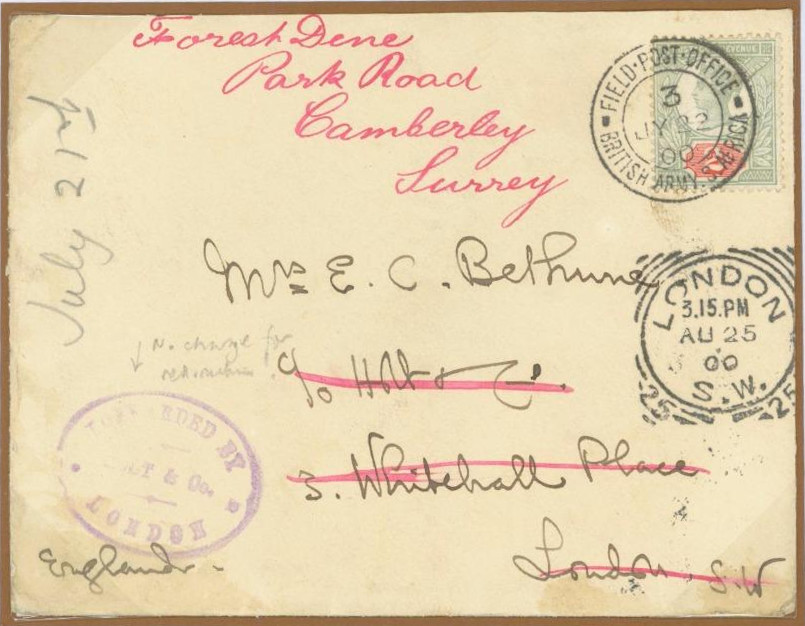 Forest Dene
Park Road
Camberley
Surrey
FIELD·POST·OFFICE
3
JY 22
00
BRITISH ARMY S. AFRICA
REVENUE
July 21st
Mrs E. C. Bethune
LONDON
3.15.PM
AU 25
00
S.W.
25 25
No charge for
c/o Holt & Co.
3. Whitehall Place
London. S.W
FORWARDED BY
& Co.
LONDON
England.